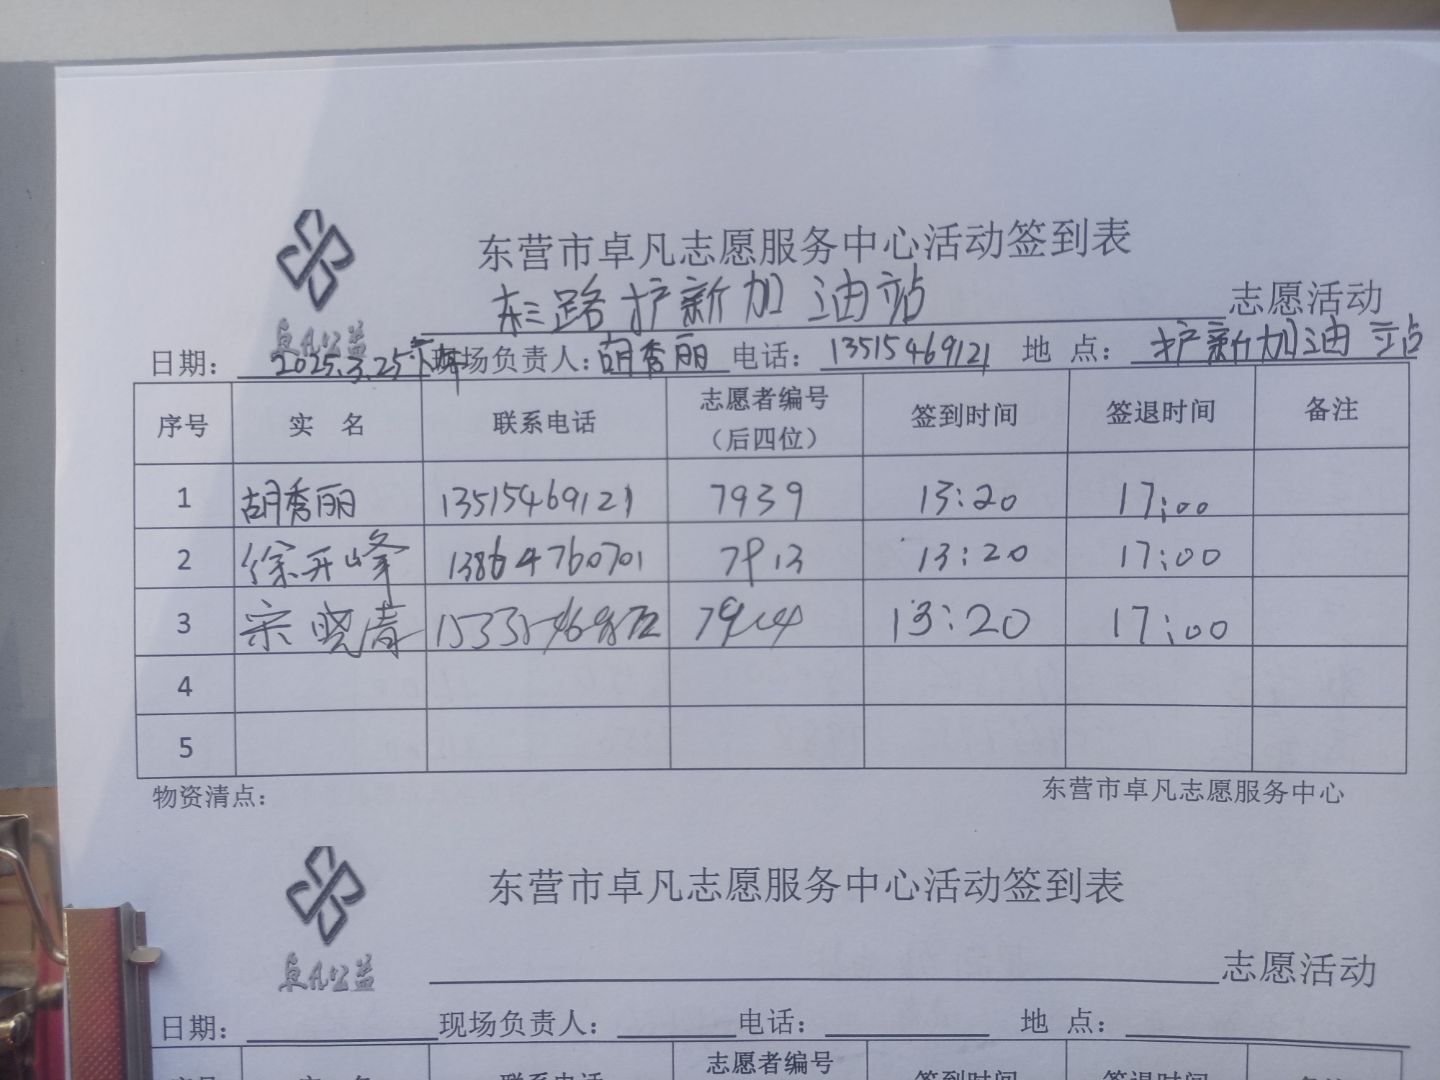 东营市卓凡志愿服务中心活动签到表
东三路护新加油站 志愿活动
卓凡公益
日期: 2025.3.25下午 现场负责人: 胡秀丽 电话: 13515469121 地 点: 护新加油站
序号 实 名 联系电话 志愿者编号（后四位） 签到时间 签退时间 备注
1 胡秀丽 13515469121 7939 13:20 17:00
2 徐开峰 13864760701 7913 13:20 17:00
3 宋晓青 13:20 17:00
4
5
物资清点: 东营市卓凡志愿服务中心
东营市卓凡志愿服务中心活动签到表
卓凡公益
志愿活动
日期: 现场负责人: 电话: 地 点:
序号 实 名 联系电话 志愿者编号 签到时间 签退时间 备注